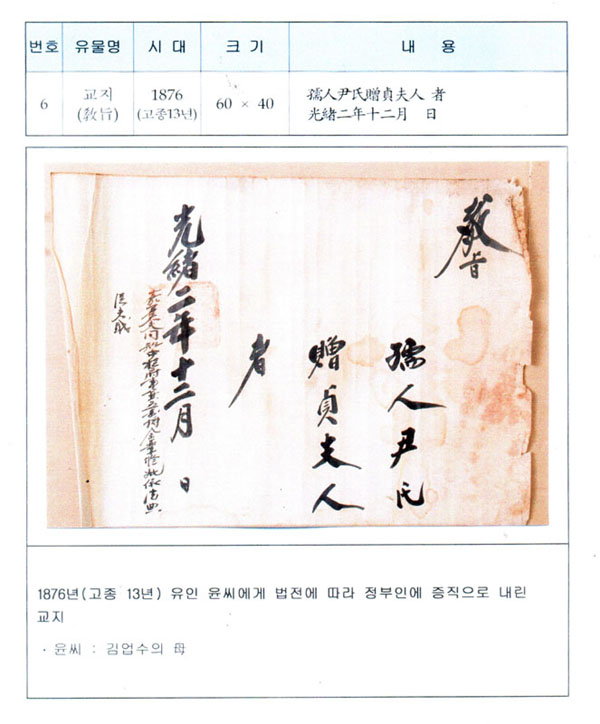 번호 유물명 시 대 크 기 내 용
6 교지 (敎旨) 1876 (고종13년) 60 × 40
孺人尹氏贈貞夫人 者
光緖二年十二月 日
敎旨
孺人尹氏
贈貞夫人
者
光緖二年十二月 日
大夫同知中樞府事 依法典
從夫職
1876년(고종 13년) 유인 윤씨에게 법전에 따라 정부인에 증직으로 내린
교지
· 윤씨 : 김업수의 母